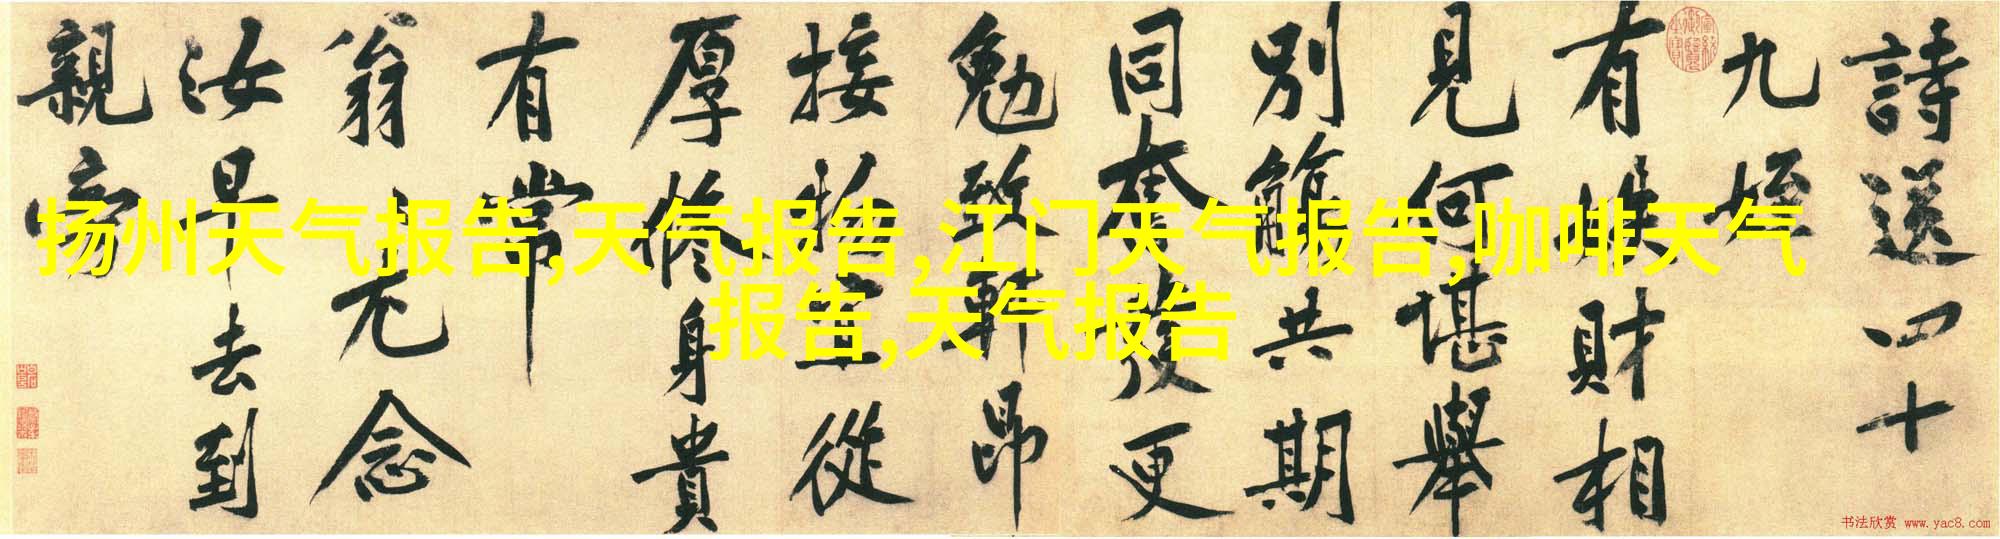 詩送四十
九姪
有財相
見何堪舉
別觴共期
同奮發更
勉致軒昂
接物宜從
厚修身貴
有常
翁〻尤念
汝早去到
親旁
扬州天气报告,天气报告,江门天气报告,咖啡天气
报告,天气报告
书法欣赏 www.yac8.com